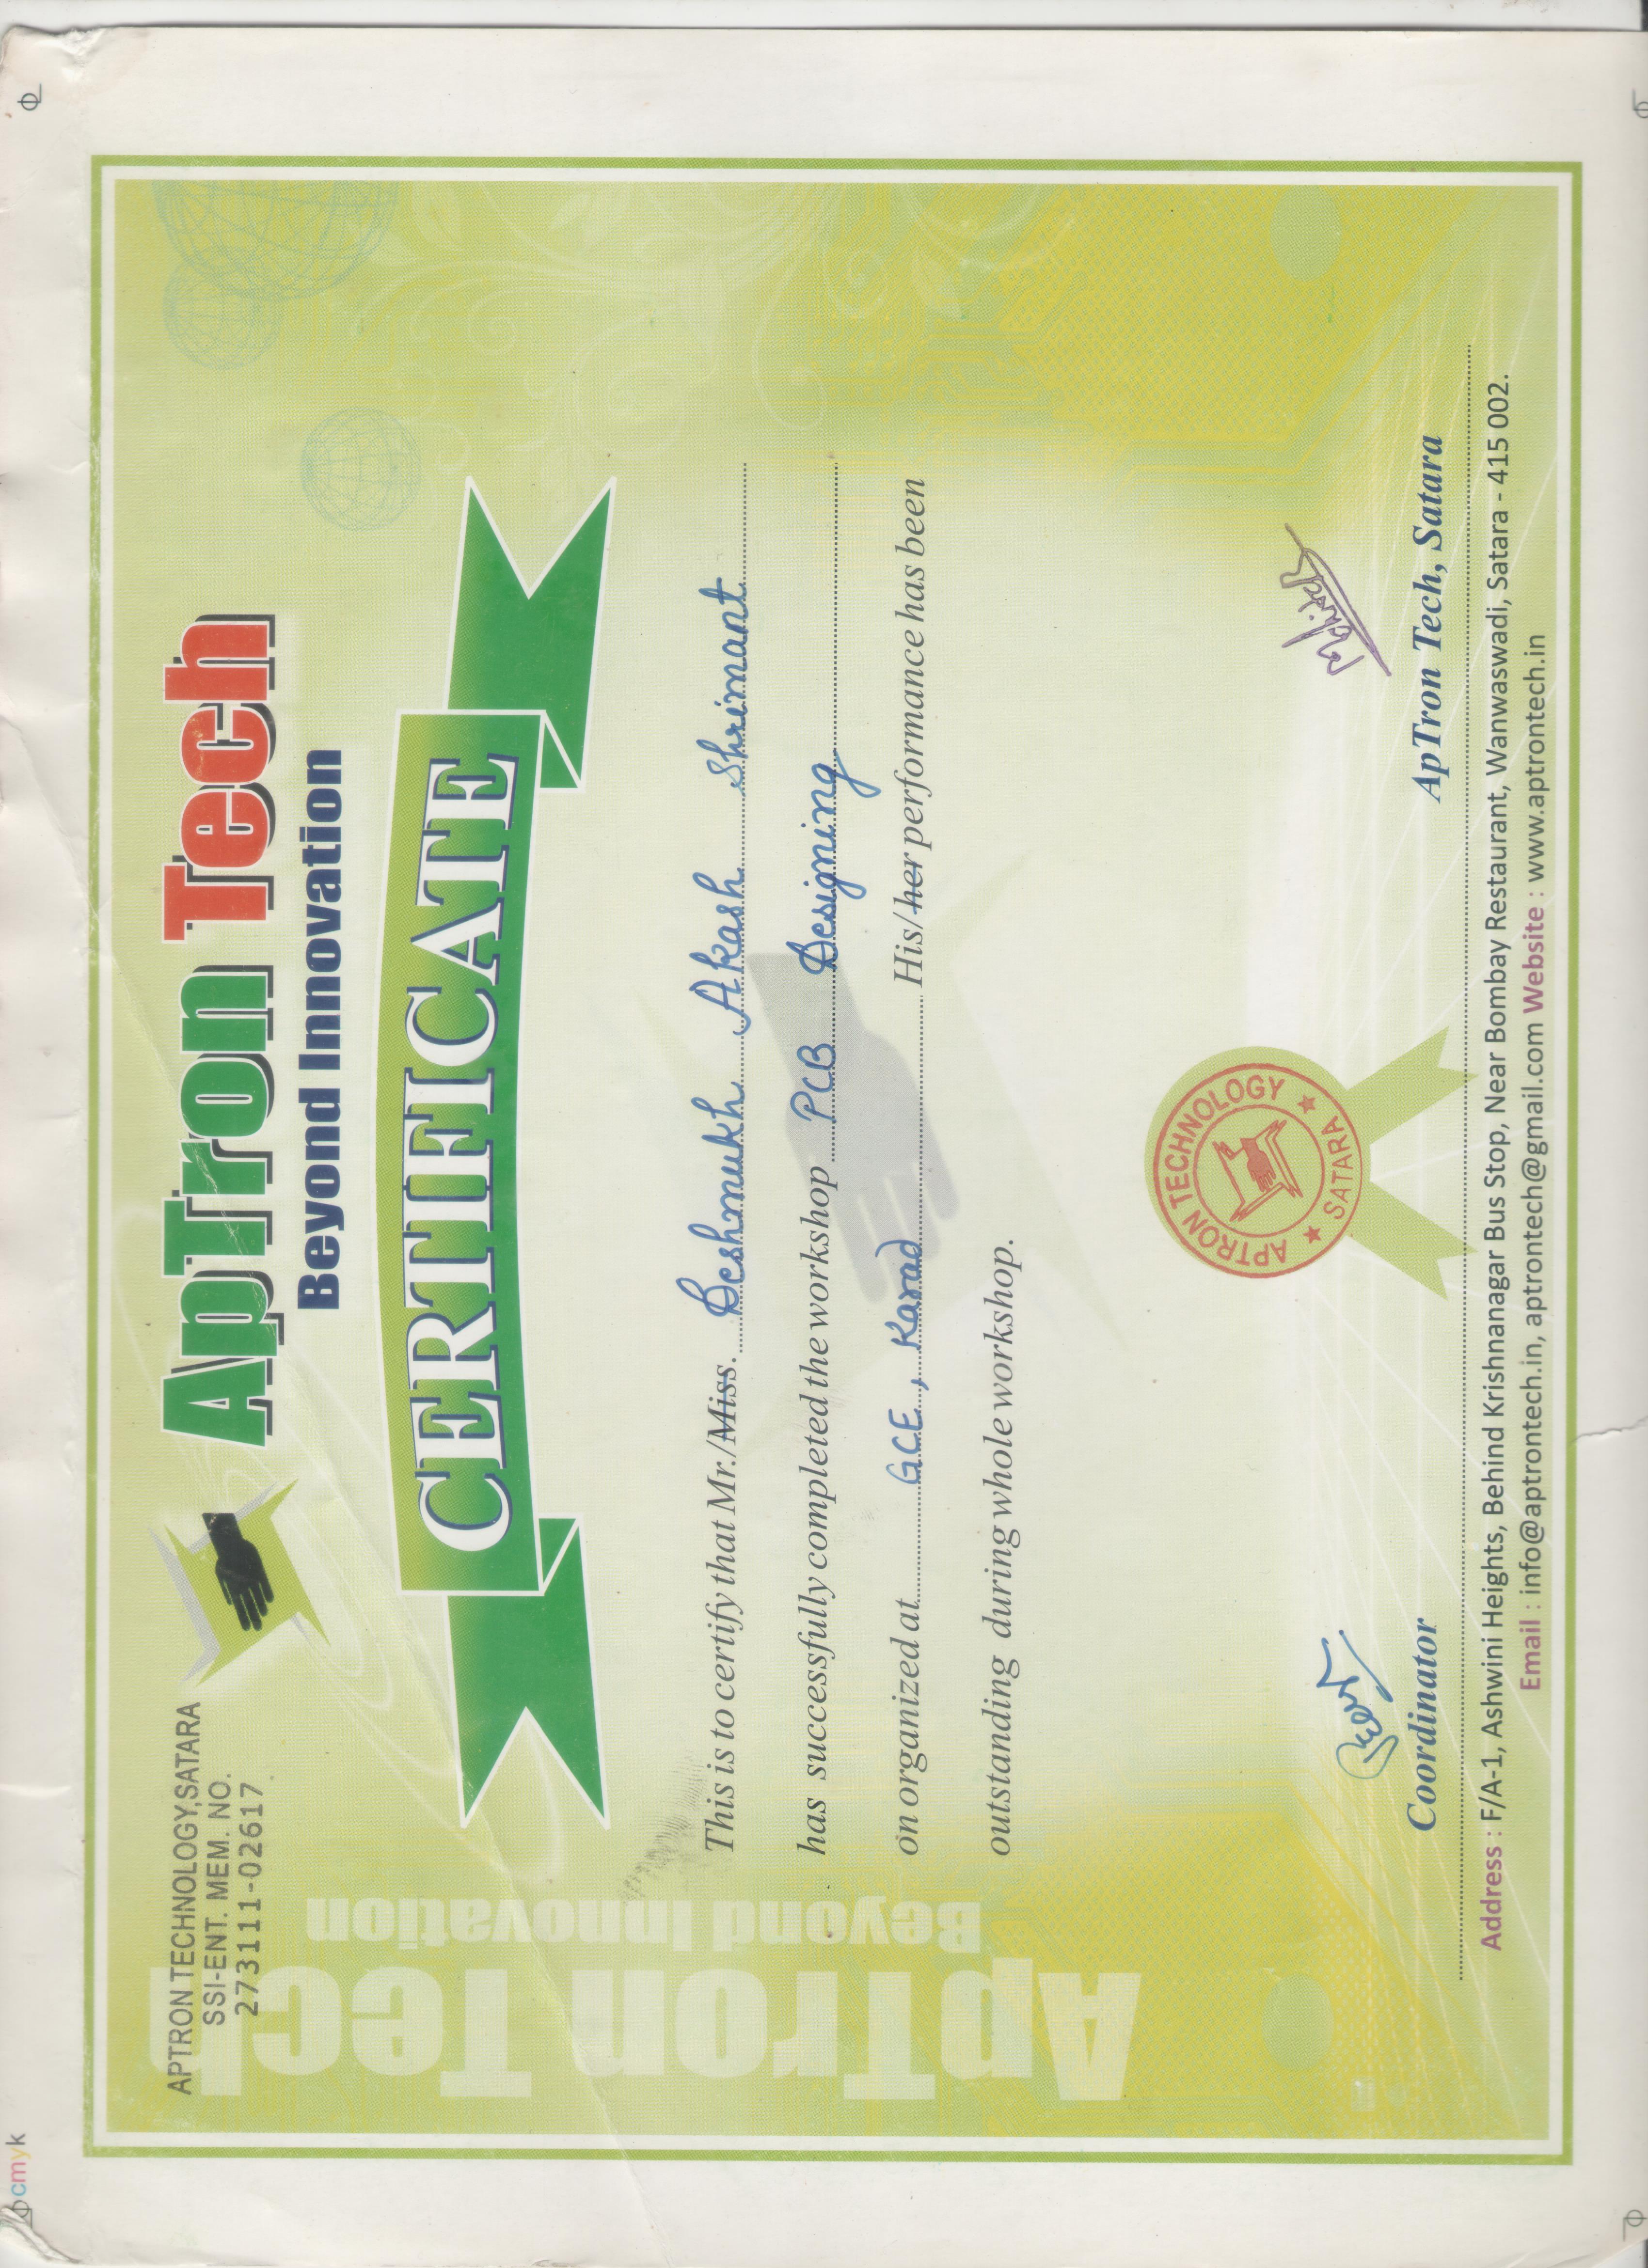 APTRON TECHNOLOGY,SATARA
SSI-ENT. MEM. NO.
273111-02617
ApTron Tech
Beyond Innovation
CERTIFICATE
This is to certify that Mr./Miss. Deshmukh Akash Shrimant
has successfully completed the workshop PCB Designing
on organized at GCE, Karad His/her performance has been
outstanding during whole workshop.
APTRON TECHNOLOGY
★ SATARA ★
Coordinator
ApTron Tech, Satara
Address : F/A-1, Ashwini Heights, Behind Krishnanagar Bus Stop, Near Bombay Restaurant, Wanwaswadi, Satara - 415 002.
Email : info@aptrontech.in, aptrontech@gmail.com Website : www.aptrontech.in
ApTron Tech
Beyond Innovation
cmyk